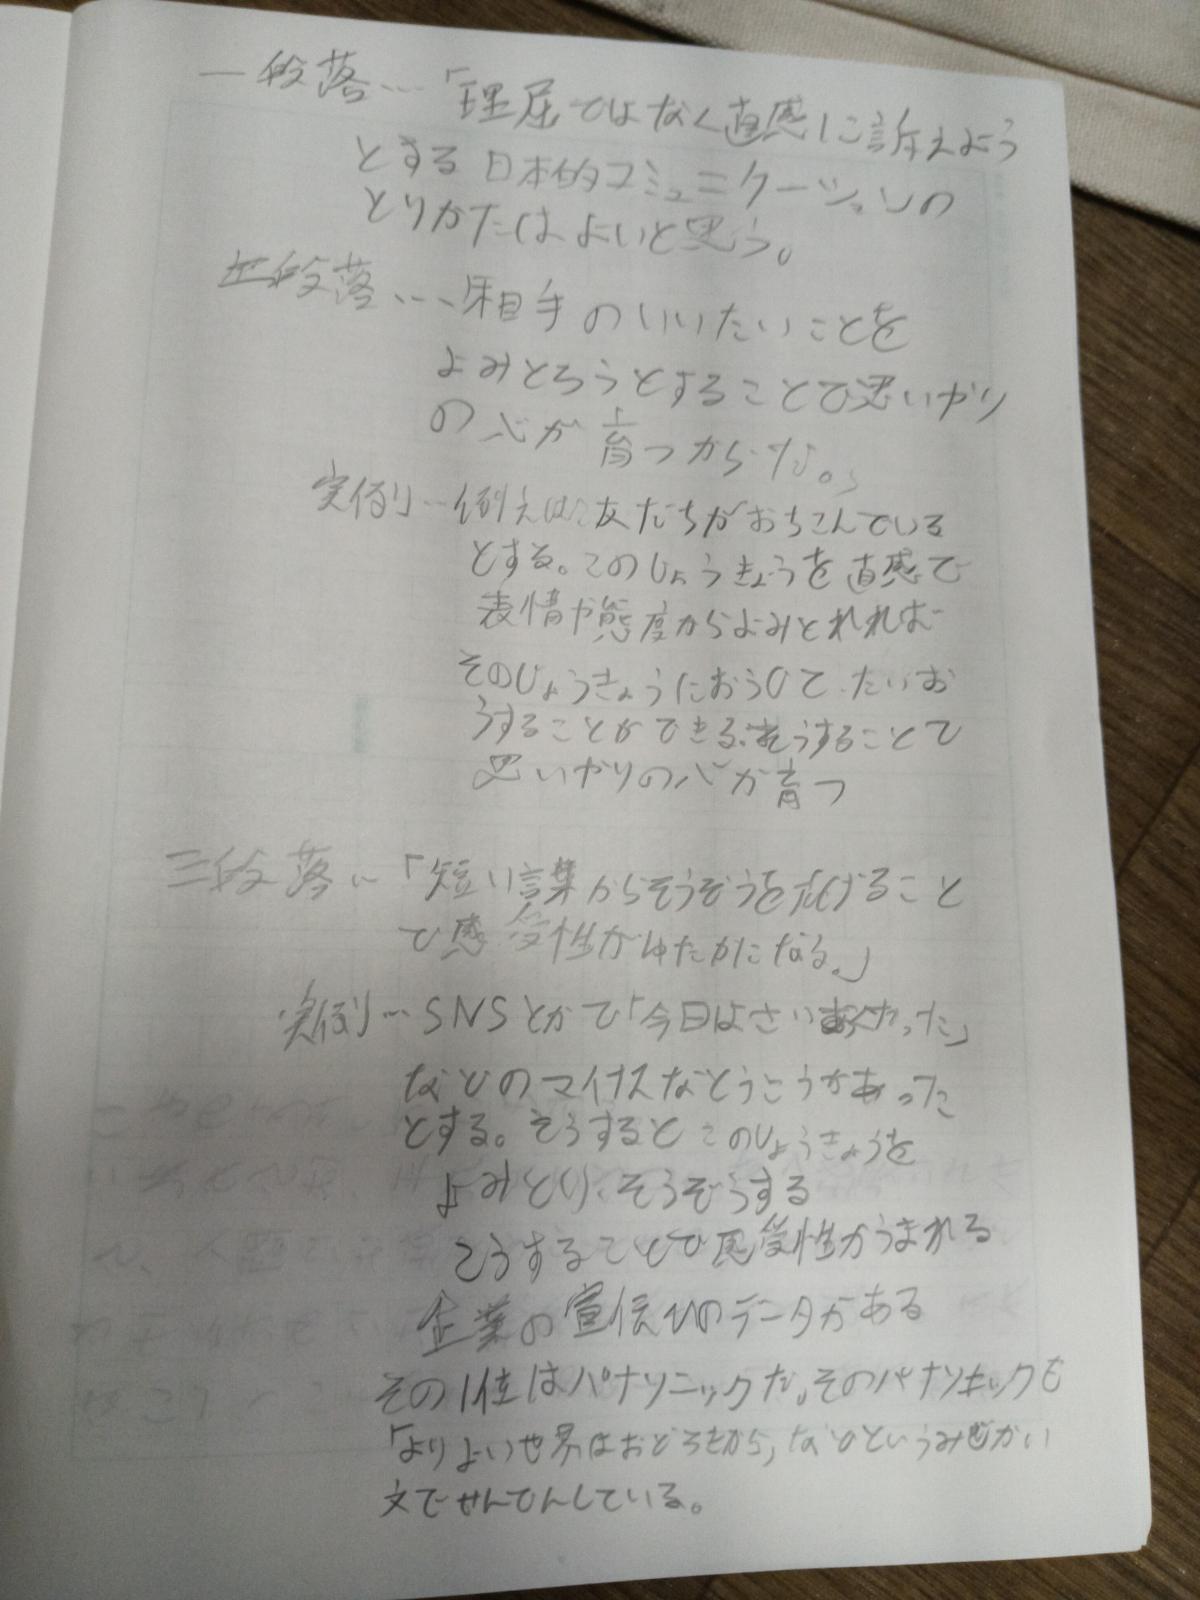 一段落…「理屈ではなく直感に訴えよう
とする日本的コミュニケーションの
とりかたはよいと思う。
二段落…相手のいいたいことを
よみとろうとすることで思いやり
の心が育つからだ。」
実例…例えば友だちがおちこんでいる
とする。このじょうきょうを直感で
表情や態度からよみとれれば
そのじょうきょうにおうじて、たいお
うすることができる。そうすることで
思いやりの心が育つ
三段落…「短い言葉からそうぞうを広げること
で感受性がゆたかになる。」
実例…SNSとかで「今日はさいあくだった」
などのマイナスなとうこうがあった
とする。そうするとこのじょうきょうを
よみとり、そうぞうする
こうすることで感受性がうまれる
企業の宣伝ひのデータがある
その1位はパナソニックだ。そのパナソニックも
「よりよい世界はおどろきから」などというみじかい
文でせんでんしている。